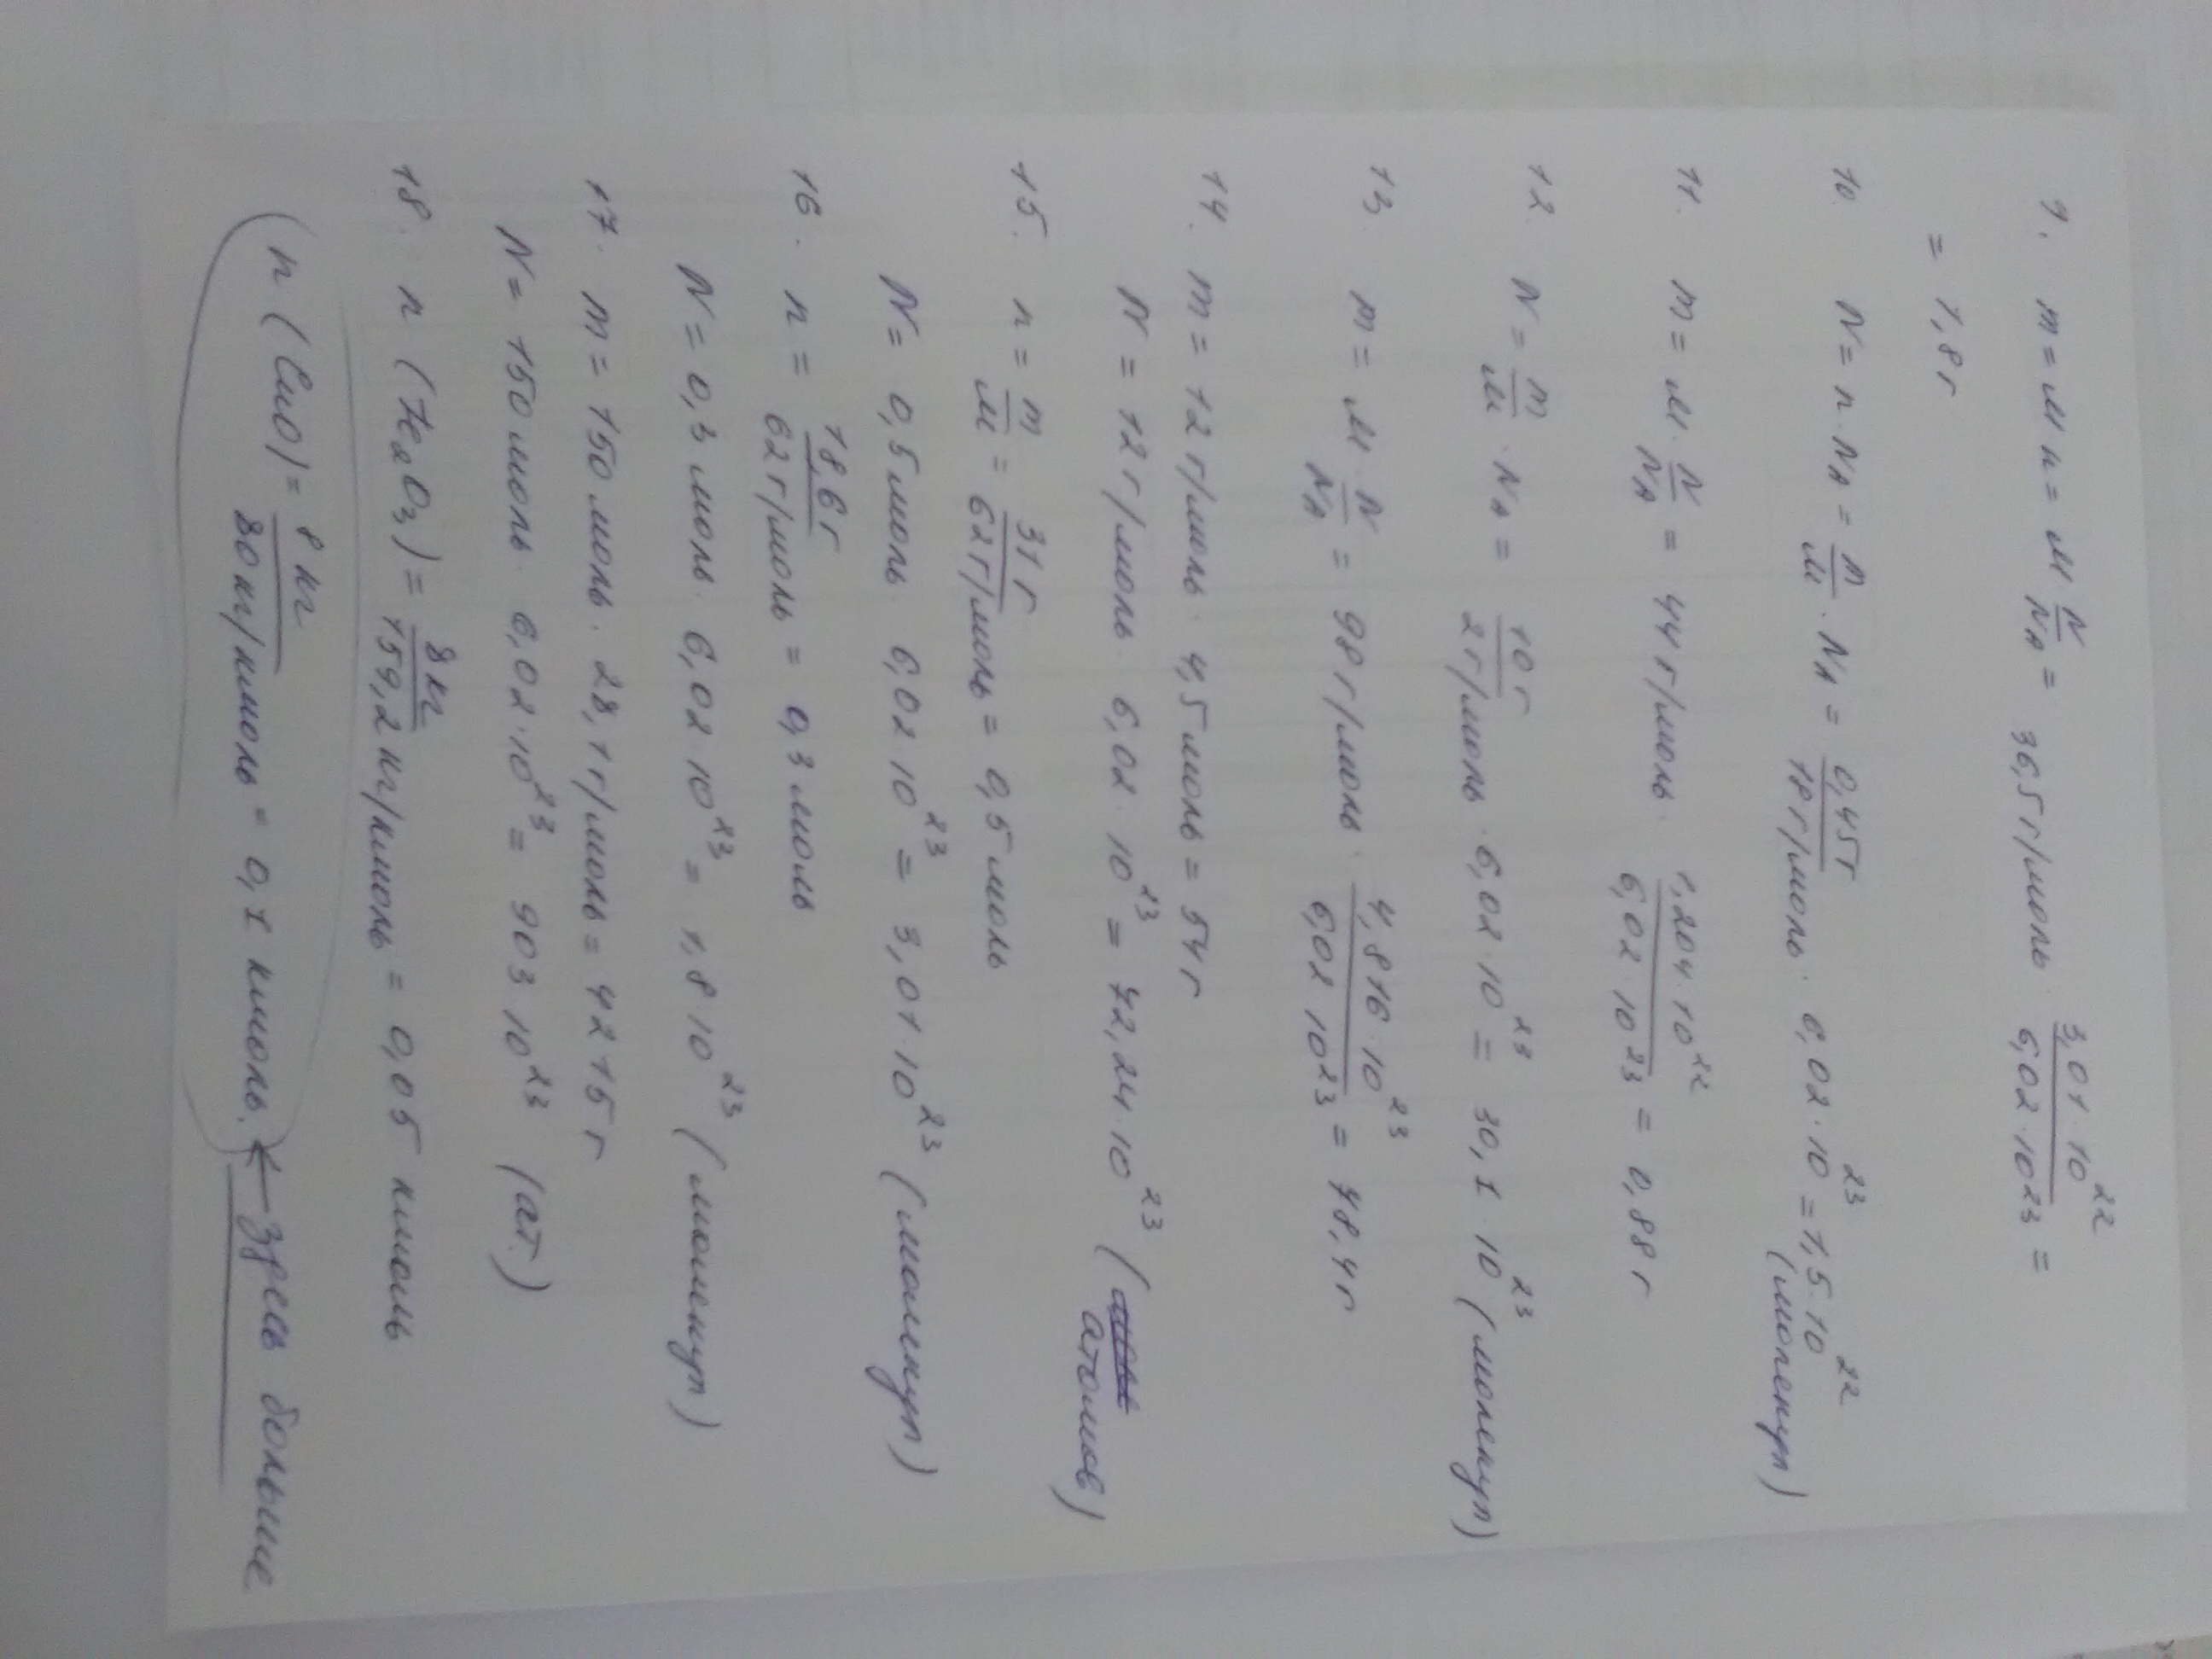 9. m = M n = M · N/NA = 36,5 г/моль · 3,01 · 10^22 / 6,02 · 10^23 =
= 1,8 г
10. N = n · NA = m/M · NA = 0,45 г / 18 г/моль · 6,02 · 10^23 = 1,5 · 10^22
(молекул)
11. m = M · N/NA = 44 г/моль · 1,204 · 10^22 / 6,02 10^23 = 0,88 г
12. N = m/M · NA = 10 г / 2 г/моль · 6,02 · 10^23 = 30,1 · 10^23 (молекул)
13. m = M · N/NA = 98 г/моль · 4,816 · 10^23 / 6,02 10^23 = 78,4 г
14. m = 12 г/моль · 4,5 моль = 54 г
N = 12 г/моль · 6,02 · 10^23 = 72,24 · 10^23 (
атомов)
15. n = m/M = 31 г / 62 г/моль = 0,5 моль
N = 0,5 моль · 6,02 10^23 = 3,01 · 10^23 (молекул)
16. n = 18,6 г / 62 г/моль = 0,3 моль
N = 0,3 моль · 6,02 · 10^23 = 1,8 10^23 (молекул)
17. m = 150 моль · 28,1 г/моль = 4215 г
N = 150 моль · 6,02 · 10^23 = 903 · 10^23 (ат.)
18. n (Fe2O3) = 8 кг / 159,2 кг/кмоль = 0,05 кмоль
n (CuO) = 8 кг / 80 кг/кмоль = 0,1 кмоль. ← Здесь больше